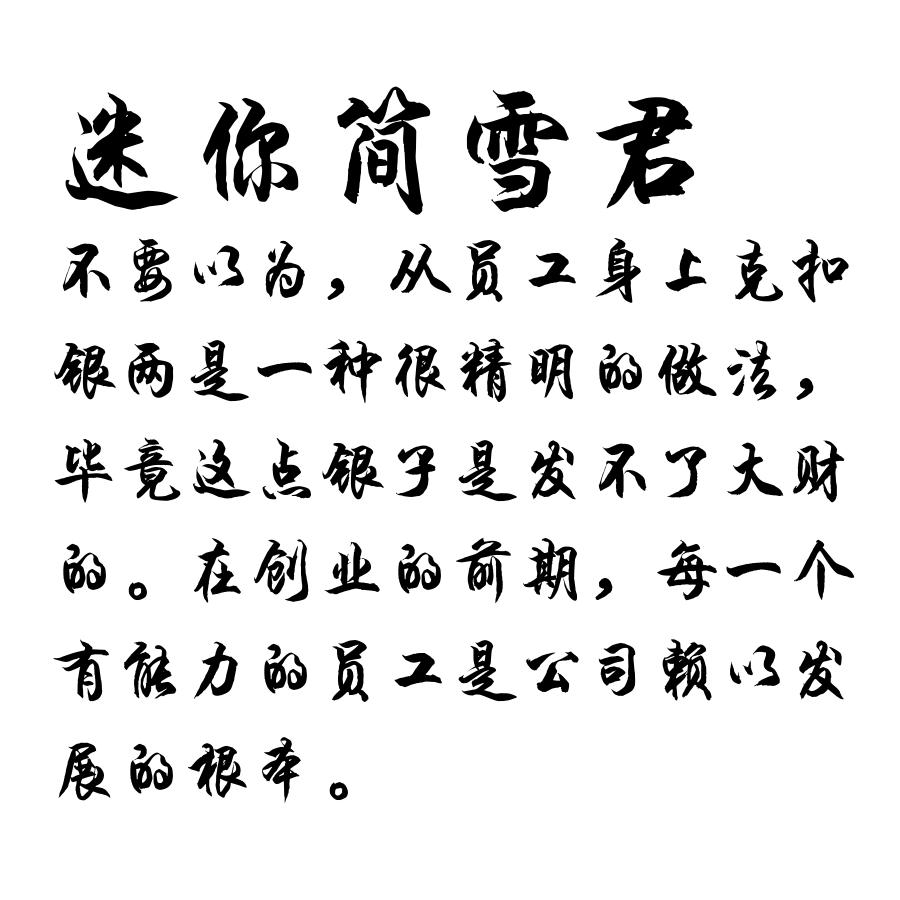 迷你简雪君
不要以为，从员工身上克扣
银两是一种很精明的做法，
毕竟这点银子是发不了大财
的。在创业的前期，每一个
有能力的员工是公司赖以发
展的根本。